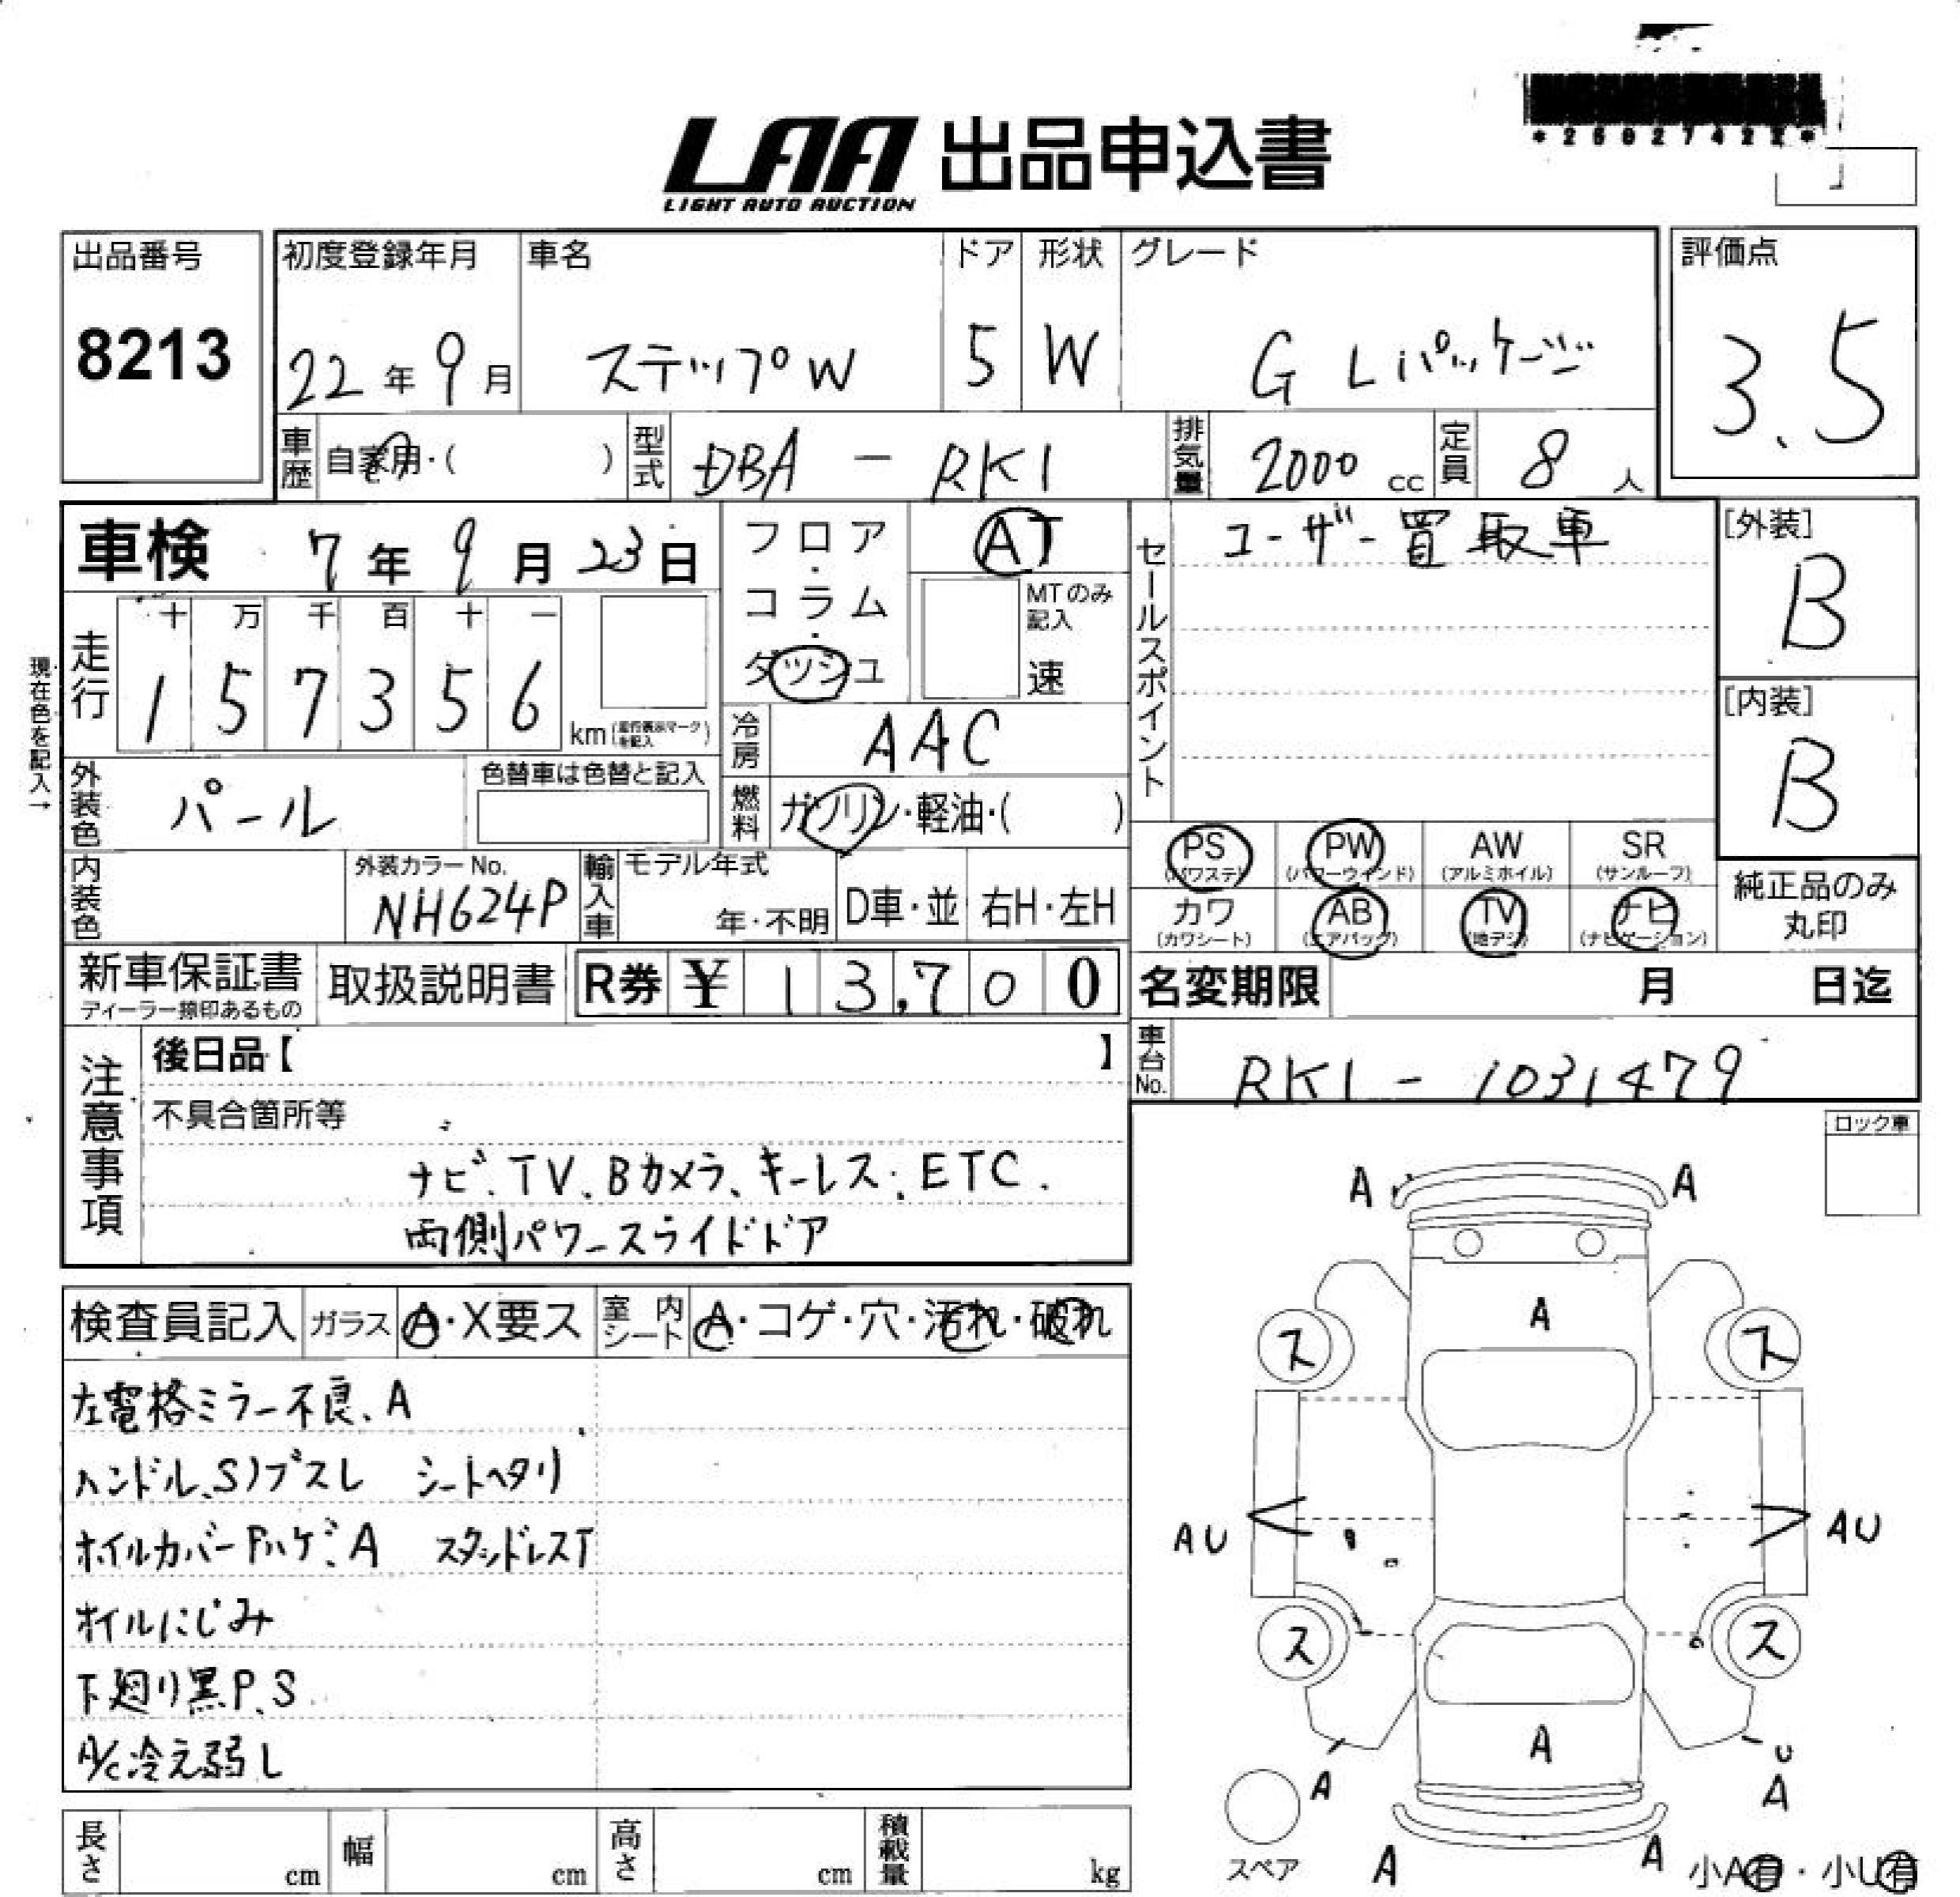 *26027422*
LAA 出品申込書
LIGHT AUTO AUCTION
出品番号 初度登録年月 車名 ドア 形状 グレード 評価点
8213 22年9月 ステップW 5 W G Lパッケージ 3.5
車歴 自家用・( ) 型式 DBA - RK1 排気量 2000 cc 定員 8 人
車検 7年9月23日 フロア・コラム・ダッシュ AT セールスポイント ユーザー買取車 [外装]
B
MTのみ記入
速
十 万 千 百 十 一
走行 1 5 7 3 5 6 km [内装]
B
現在色を記入→
冷房 AAC
外装色 パール 色替車は色替と記入 燃料 ガソリン・軽油・( )
PS PW AW SR
(パワステ) (パワーウインド) (アルミホイル) (サンルーフ)
内装色 外装カラーNo. NH624P 輸入車 モデル年式 年・不明 D車・並 右H・左H
カワ AB TV ナビ
(カワシート) (エアバッグ) (地デジ) (ナビゲーション)
純正品のみ
丸印
新車保証書 取扱説明書 R券 ¥ 13,700 名変期限 月 日迄
ディーラー捺印あるもの
車台No. RK1-1031479
注意事項 後日品【 】
不具合箇所等
ナビ、TV、Bカメラ、キーレス、ETC.
両側パワースライドドア
ロック車
検査員記入 ガラス A・X要ス 室内シート A・コゲ・穴・汚れ・破れ
左電格ミラー不良、A
ハンドル、S)ブスレ シートヘタリ
ホイルカバーPハゲ、A スタッドレスT
オイルにじみ
下廻り黒P、S
A/C冷え弱し
A A
A
ス ス
AU AU
ス ス
A
A U
A
A A
スペア
小A有・小U有
長さ cm 幅 cm 高さ cm 積載量 kg